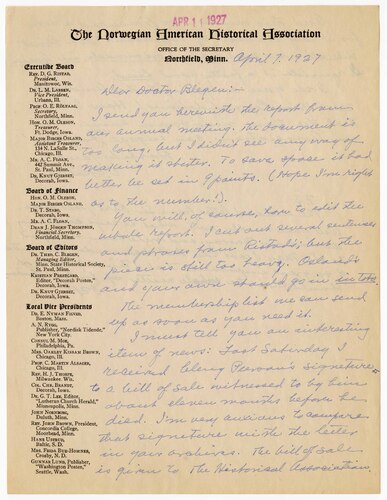 APR 11 1927
The Norwegian American Historical Association
OFFICE OF THE SECRETARY
Northfield, Minn. April 9. 1927
Executive Board
REV. D. G. RISTAD,
President,
Manitowoc, Wis.
DR. L. M. LARSEN,
Vice President,
Urbana, Ill.
PROF. O. E. RÖLVAAG,
Secretary,
Northfield, Minn.
HON. O. M. OLESON,
Treasurer,
Ft. Dodge, Iowa.
MAJOR BIRGER OSLAND,
Assistant Treasurer,
134 N. LaSalle St.,
Chicago, Ill.
MR. A. C. FLOAN,
442 Summit Ave.,
St. Paul, Minn.
DR. KNUT GJERSET,
Decorah, Iowa.
Board of Finance
HON. O. M. OLESON,
MAJOR BIRGER OSLAND,
DR. T. STABO,
Decorah, Iowa.
MR. A. C. FLOAN,
DEAN J. JÖRGEN THOMPSON,
Financial Secretary,
Northfield, Minn.
Board of Editors
DR. THEO. C. BLEGEN,
Managing Editor,
Minn. State Historical Society,
St. Paul, Minn.
KRISTIAN PRESTGARD,
Editor, "Decorah Posten,"
Decorah, Iowa.
DR. KNUT GJERSET,
Decorah, Iowa.
Local Vice Presidents
DR. E. NYMAN FILVER,
Boston, Mass.
A. N. RYGG,
Publisher, "Nordisk Tidende,"
New York City.
CONSUL M. MOE,
Philadelphia, Pa.
MRS. OAKLEY KISSAM BROWN,
Chicago, Ill.
PROF. C. MARTIN ALSAGER,
Chicago, Ill.
REV. H. J. THORPE,
Milwaukee, Wis.
CHR. BRANDT,
Decorah, Iowa.
DR. G. T. LEE, Editor,
"Lutheran Church Herald,"
Minneapolis, Minn.
JOHN NORDBOM,
Duluth, Minn.
REV. JOHN BROWN, President,
Concordia College,
Moorhead, Minn.
HANS USTRUD,
Baltic, S. D.
MRS. FRIDA BUE-HOMNES,
Crosby, N. D.
GUNNAR LUND, Publisher,
"Washington Posten,"
Seattle, Wash.
Dear Doctor Blegen:—
I send you herewith the report from
our annual meeting. The document is
too long, but I didn't see any way of
making it shorter. To save space it had
better be set in 9 points. (Hope I'm right
as to the number!).
You will, of course, have to edit the
whole report. I cut out several sentences
and phrases from Ristad's; but the
piece is still too heavy. Osland's
and yours should go in in toto
The membership list we can send
up as soon as you need it.
I must tell you an interesting
item of news: Last Saturday I
received Cleng Peerson's signature
to a bill of sale witnessed to by him
about eleven months before he
died. I'm very anxious to compare
that signature with the letter
in your archives. The bill of sale
is given to the Historical Association,